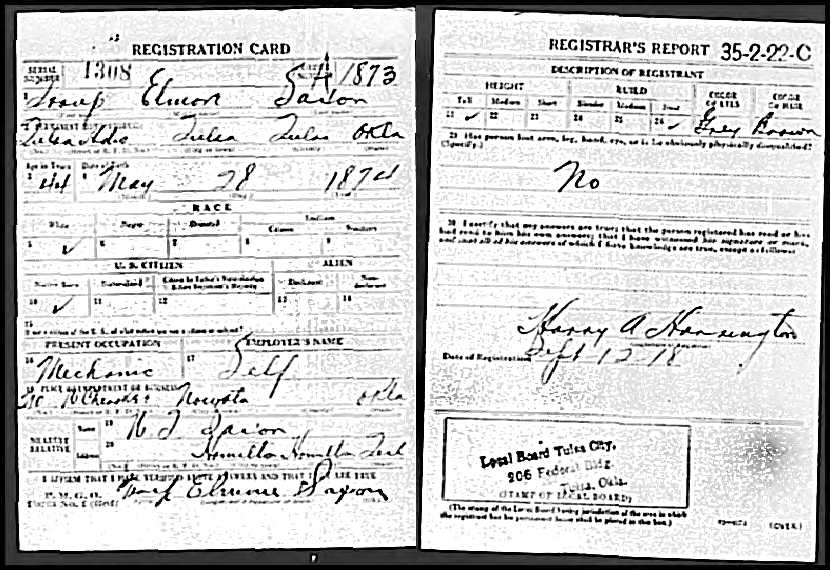 REGISTRATION CARD
SERIAL NUMBER 1308 ORDER NUMBER A 1873
Troup Elmore Saxon
PERMANENT HOME ADDRESS
Tulsa Tulsa Okla
Age in Years Date of Birth
44 May 28 1874
RACE
White Negro Oriental Indian
Citizen
5 ✓ 6 7 8 9
U. S. CITIZEN ALIEN
Native Born Naturalized Declarant Non-declarant
10 ✓ 11 12 13 14
15
PRESENT OCCUPATION EMPLOYER'S NAME
16 Mechanic 17 Self
18 PLACE OF EMPLOYMENT OR BUSINESS
Nowata Okla
NEAREST RELATIVE Name 19 Saxon
Address 20 Hamilton Hamilton
I AFFIRM THAT I HAVE VERIFIED ABOVE ANSWERS AND THAT THEY ARE TRUE
P. M. G. O.
Form No. 1 (Red) Troup Elmore Saxon
REGISTRAR'S REPORT 35-2-22-C
DESCRIPTION OF REGISTRANT
HEIGHT BUILD COLOR OF EYES COLOR OF HAIR
Tall Medium Short Slender Medium Stout
21 ✓ 22 23 24 25 26 ✓ Grey Brown
29 Has person lost arm, leg, hand, eye, or is he obviously physically disqualified?
(Specify.)
No
30 I certify that my answers are true; that the person registered has read or has
had read to him his own answers; that I have witnessed his signature or mark,
and that all of his answers of which I have knowledge are true, except as follows:
Harry A Harrington
Date of Registration Sept 12 18
Local Board Tulsa City,
206 Federal Bldg.
Tulsa, Okla.
(STAMP OF LOCAL BOARD)
(The stamp of the Local Board having jurisdiction of the area in which
the registrant has his permanent home shall be placed in this box.)
(OVER)